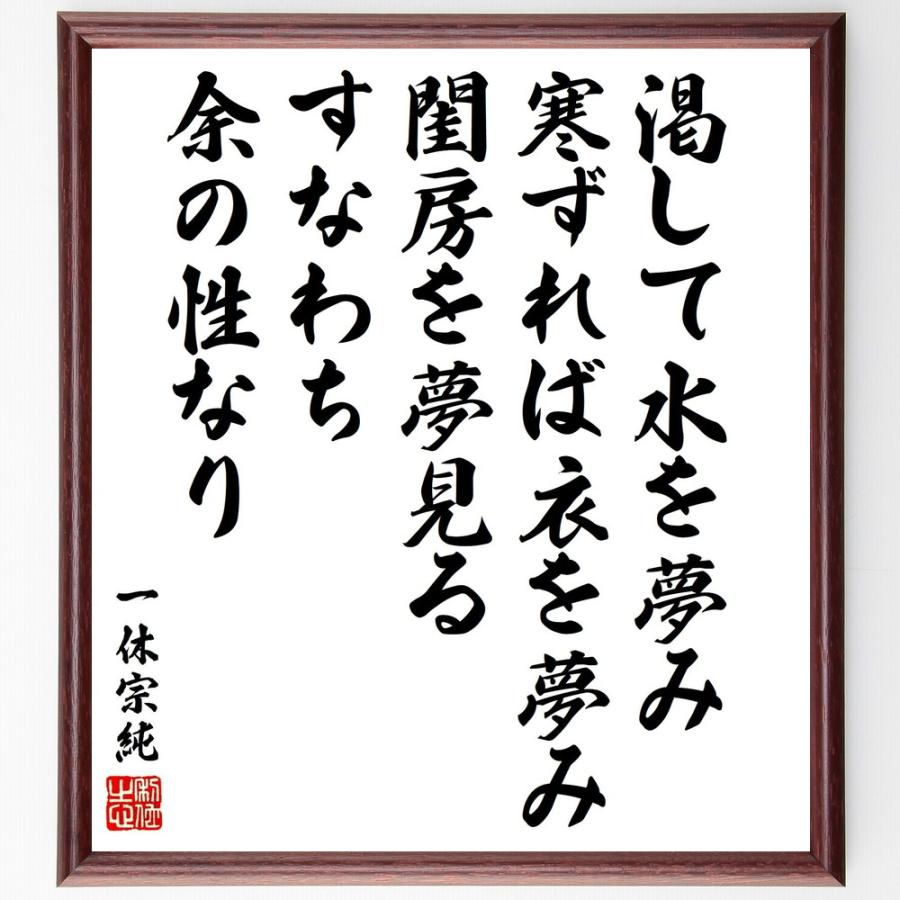 渇して水を夢み
寒ずれば衣を夢み
閨房を夢見る
すなわち
余の性なり
一休宗純